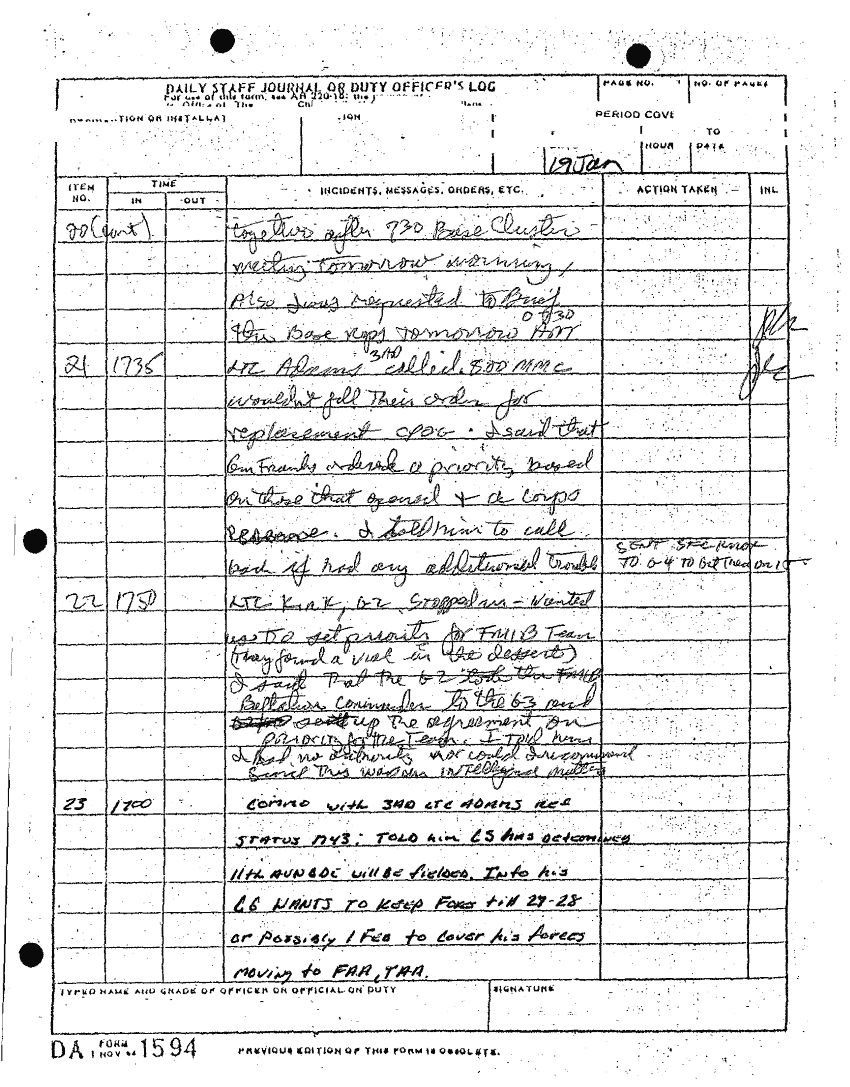 DAILY STAFF JOURNAL OR DUTY OFFICER'S LOG
For use of this form, see AR 220-15; the
PAGE NO.
NO. OF PAGES
PERIOD COVE
TO
HOUR
DATE
19 Jan
ITEM NO.
TIME
IN
OUT
INCIDENTS, MESSAGES, ORDERS, ETC.
ACTION TAKEN
INL
20 (cont)
together after 730 Base Cluster
meeting tomorrow morning,
Also I was requested to Brief
0830
the Base reps tomorrow AM
21 1735 LTC Adams 3AD called. 800 MMC
wouldn't fill their order for
replacement CPOG. I said that
Gen Franks ordered a priority based
on those that opened + a corps
I told him to call
back if had any additional trouble
SENT SFC
TO G4 TO Get Them on it
22 1750 LTC Kirk, G2, Stopped in - Wanted
us to set priority for FMIB Team
(They found a vial in the dessert)
I said That the G2 took the FMIB
Battalion Commander to the G3 and
set up the agreement on
priority for the Team. I told him
I had no authority nor could I recommend
Since This was an intelligence matter
23 1700 Commo with 3AD LTC ADAMS REF
STATUS M43: TOLD him CS has determined
11th AVN BDE will BE fielded. Info his
CG WANTS TO KEEP FOXs till 27-28
or Possibly 1 Feb to Cover his forces
moving to FAA, TAA.
TYPED NAME AND GRADE OF OFFICER OR OFFICIAL ON DUTY
SIGNATURE
DA FORM 1594
PREVIOUS EDITION OF THIS FORM IS OBSOLETE.